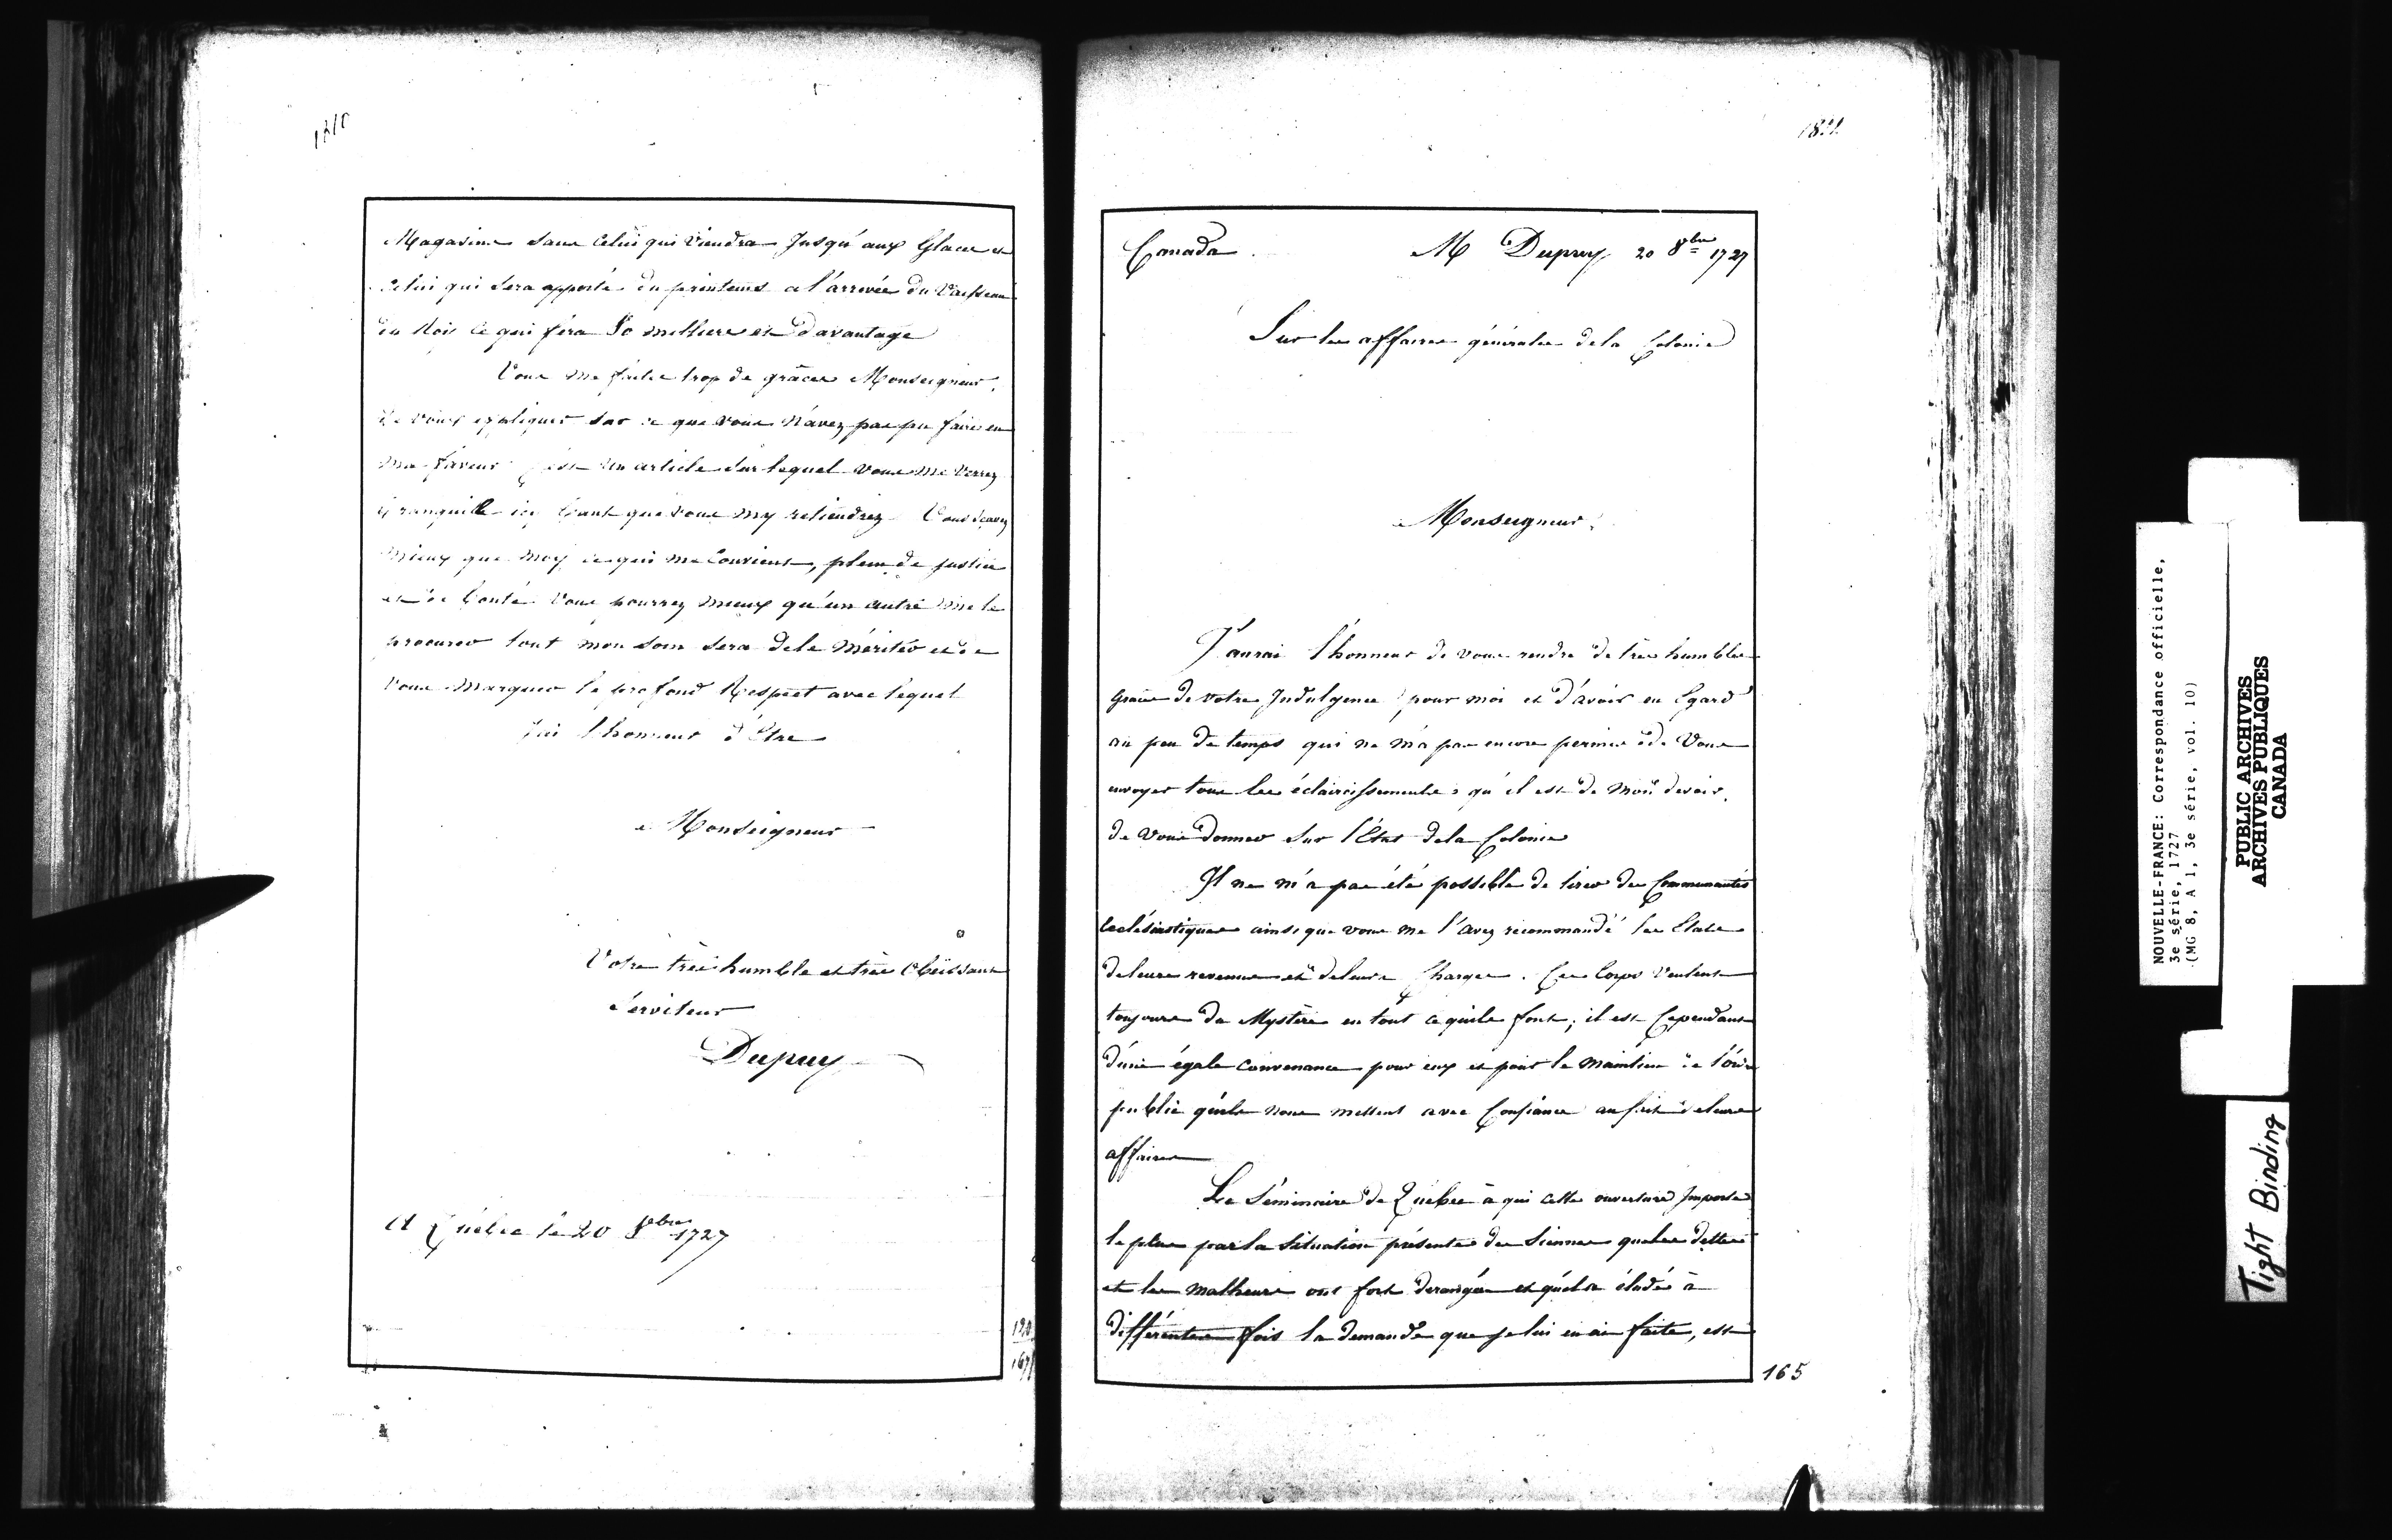 Magasins sans celui qui viendra Jusqu'aux Glaces et
celui qui sera apporté du printems a l'arrivée du Vaisseau
du Roi ce qui fera 80 milliers et davantage
Vous me faites trop de grâces Monseigneur,
de vous expliquer sur ce que vous n'avez pas pu faire en
ma faveur C'est un article sur lequel vous me verrez
tranquille ici tant que vous m'y retiendrez Vous sçavez
mieux que moy ce qui me Convient, plein de justice
et de bonté vous pourrez mieux qu'un autre me le
procurer tout mon soin sera de le mériter et de
vous marquer le profond Respect avec lequel
J'ai l'honneur d'Etre
Monseigneur
Votre très humble et très Obéissant
Serviteur
Dupuy
A Québec le 20 8bre 1727
Canada
M Dupuy 20 8bre 1727
Sur les affaires générales de la Colonie
Monseigneur,
J'aurai l'honneur de vous rendre de très humbles
graces de votre Indulgence pour moi et d'avoir eu Egard
au peu de temps qui ne m'a pas encore permis de Vous
envoyer tous les éclaircissements qu'il est de mon devoir
de vous donner sur l'Etat de la Colonie
Il ne m'a pas été possible de tirer des Communautés
Ecclésiastiques ainsi que vous me l'avez recommandé les Etats
de leurs revenus et de leurs Charges. Ces Corps veulent
toujours du Mystère en tout ce qu'ils font; il est Cependant
d'une égale convenance pour eux et pour le maintien de l'ordre
public qu'ils nous mettent avec Confiance au fait de leurs
affaires
Le Séminaire de Québec à qui cette ouverture Importe
le plus par la situation présente des siennes que les dettes
et les malheurs ont fort derangées et qui a éludé à
différentes fois la demande que je lui en ai faite, est
165
NOUVELLE-FRANCE: Correspondance officielle,
3e série, 1727
(MG 8, A 1, 3e série, vol. 10)
PUBLIC ARCHIVES
ARCHIVES PUBLIQUES
CANADA
Tight Binding